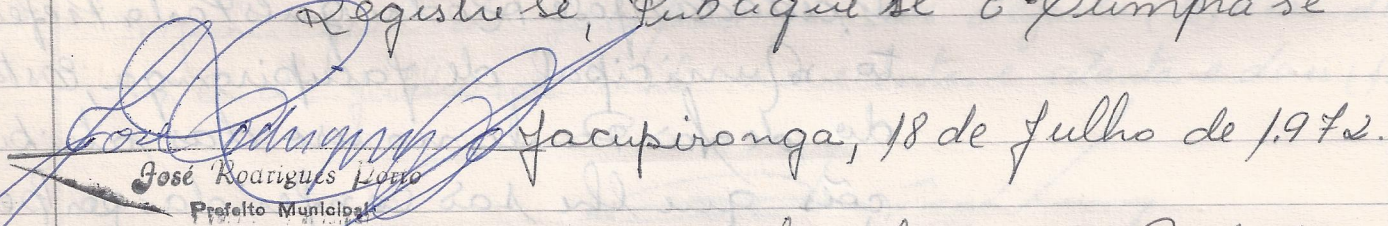 Registre se, Publique se e Cumpra se
Jacupiranga, 18 de Julho de 1.972.
José Rodrigues Porto
Prefeito Municipal